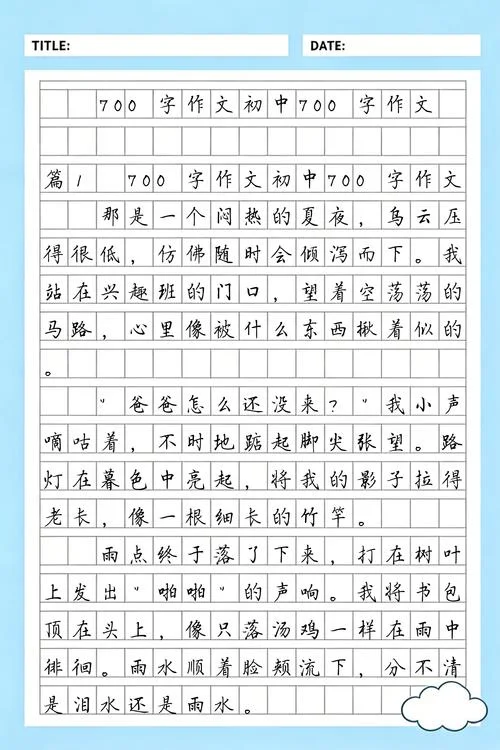 TITLE:
DATE:
700 字作文初中700 字作文
篇1 700 字作文初中700 字作文
那是一个闷热的夏夜，乌云压
得很低，仿佛随时会倾泻而下。我
站在兴趣班的门口，望着空荡荡的
马路，心里像被什么东西揪着似的
。
"爸爸怎么还没来？"我小声
嘀咕着，不时地踮起脚尖张望。路
灯在暮色中亮起，将我的影子拉得
老长，像一根细长的竹竿。
雨点终于落了下来，打在树叶
上发出"啪啪"的声响。我将书包
顶在头上，像只落汤鸡一样在雨中
徘徊。雨水顺着脸颊流下，分不清
是泪水还是雨水。